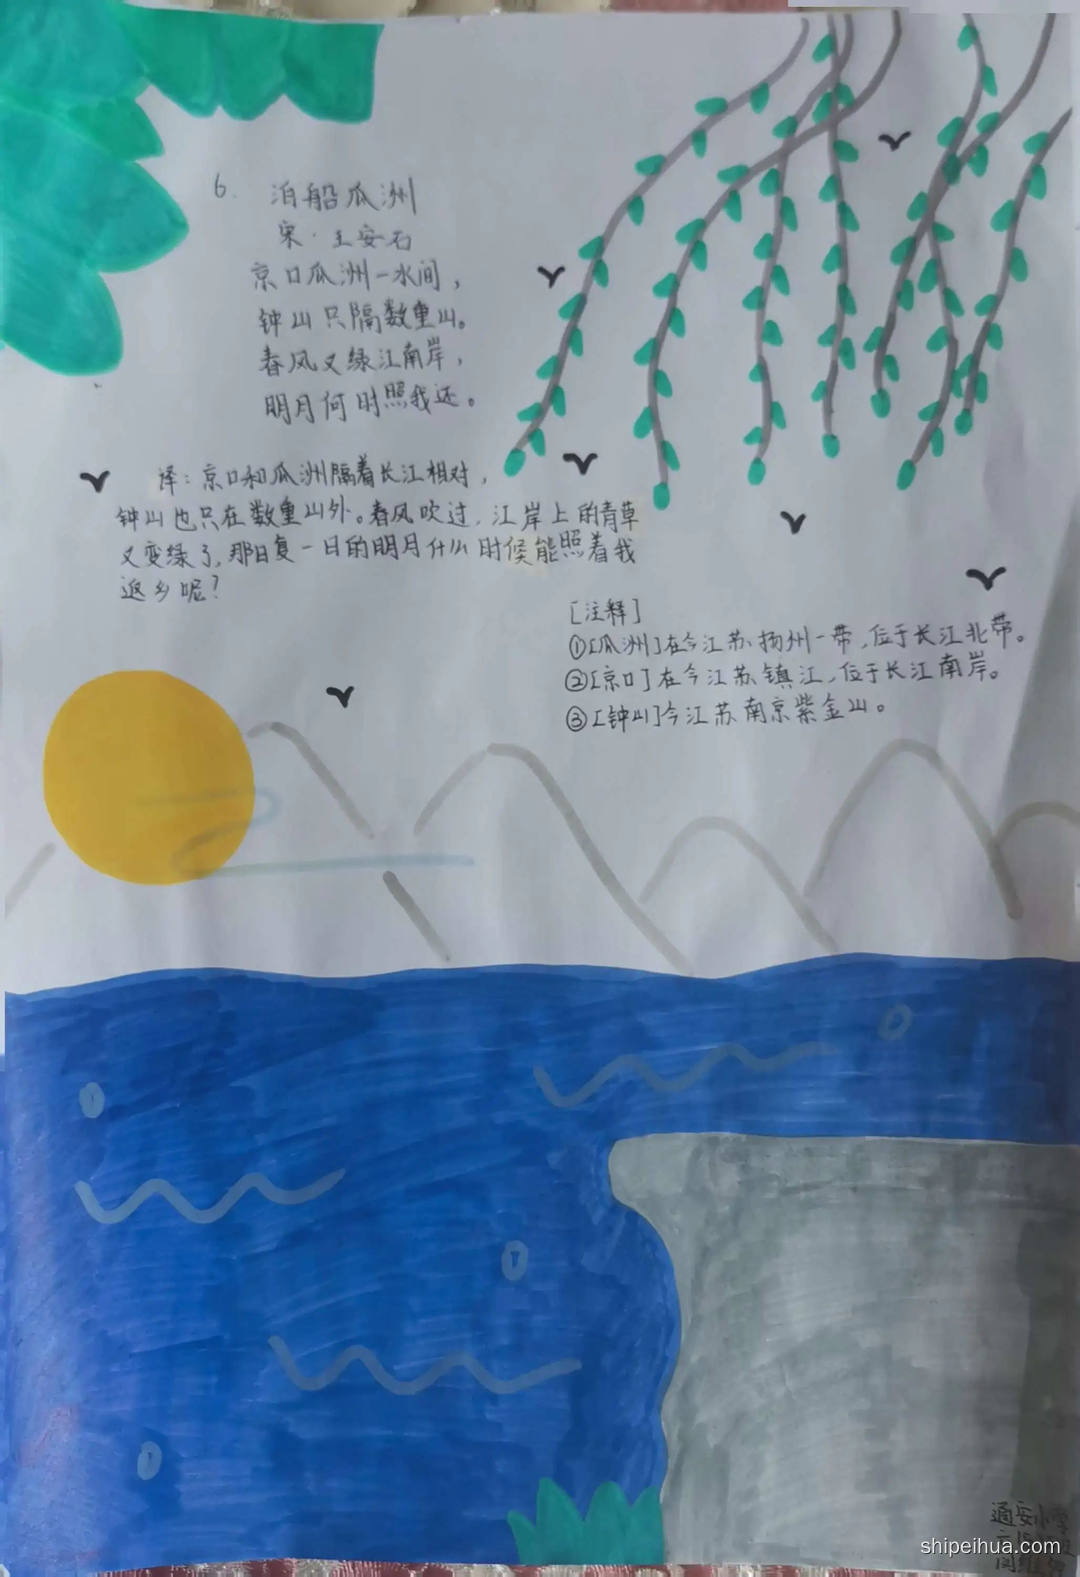 6. 泊船瓜洲
宋·王安石
京口瓜洲一水间，
钟山只隔数重山。
春风又绿江南岸，
明月何时照我还。
译：京口和瓜洲隔着长江相对，
钟山也只在数重山外。春风吹过，江岸上的青草
又变绿了，那日复一日的明月什么时候能照着我
返乡呢？
[注释]
①[瓜洲]在今江苏扬州一带，位于长江北带。
②[京口]在今江苏镇江，位于长江南岸。
③[钟山]今江苏南京紫金山。
通安小学
shipeihua.com